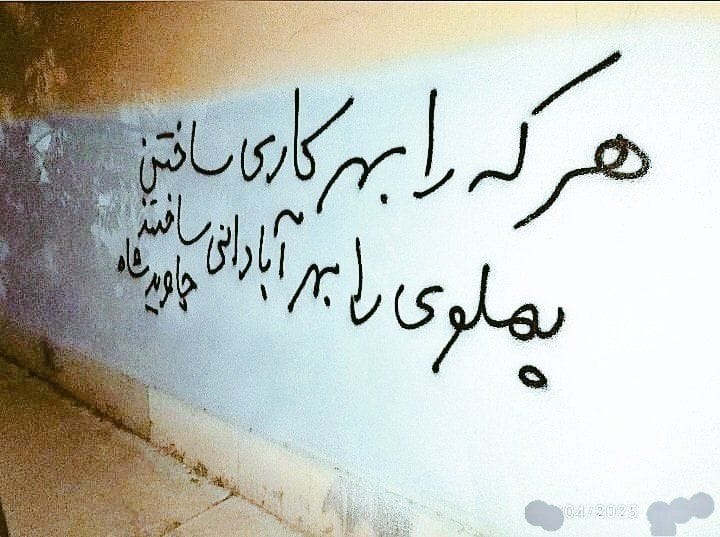 هر که را بهر کاری ساختن
پهلوی را بهر آبادانی ساختند
جاوید شاه
/04/2025